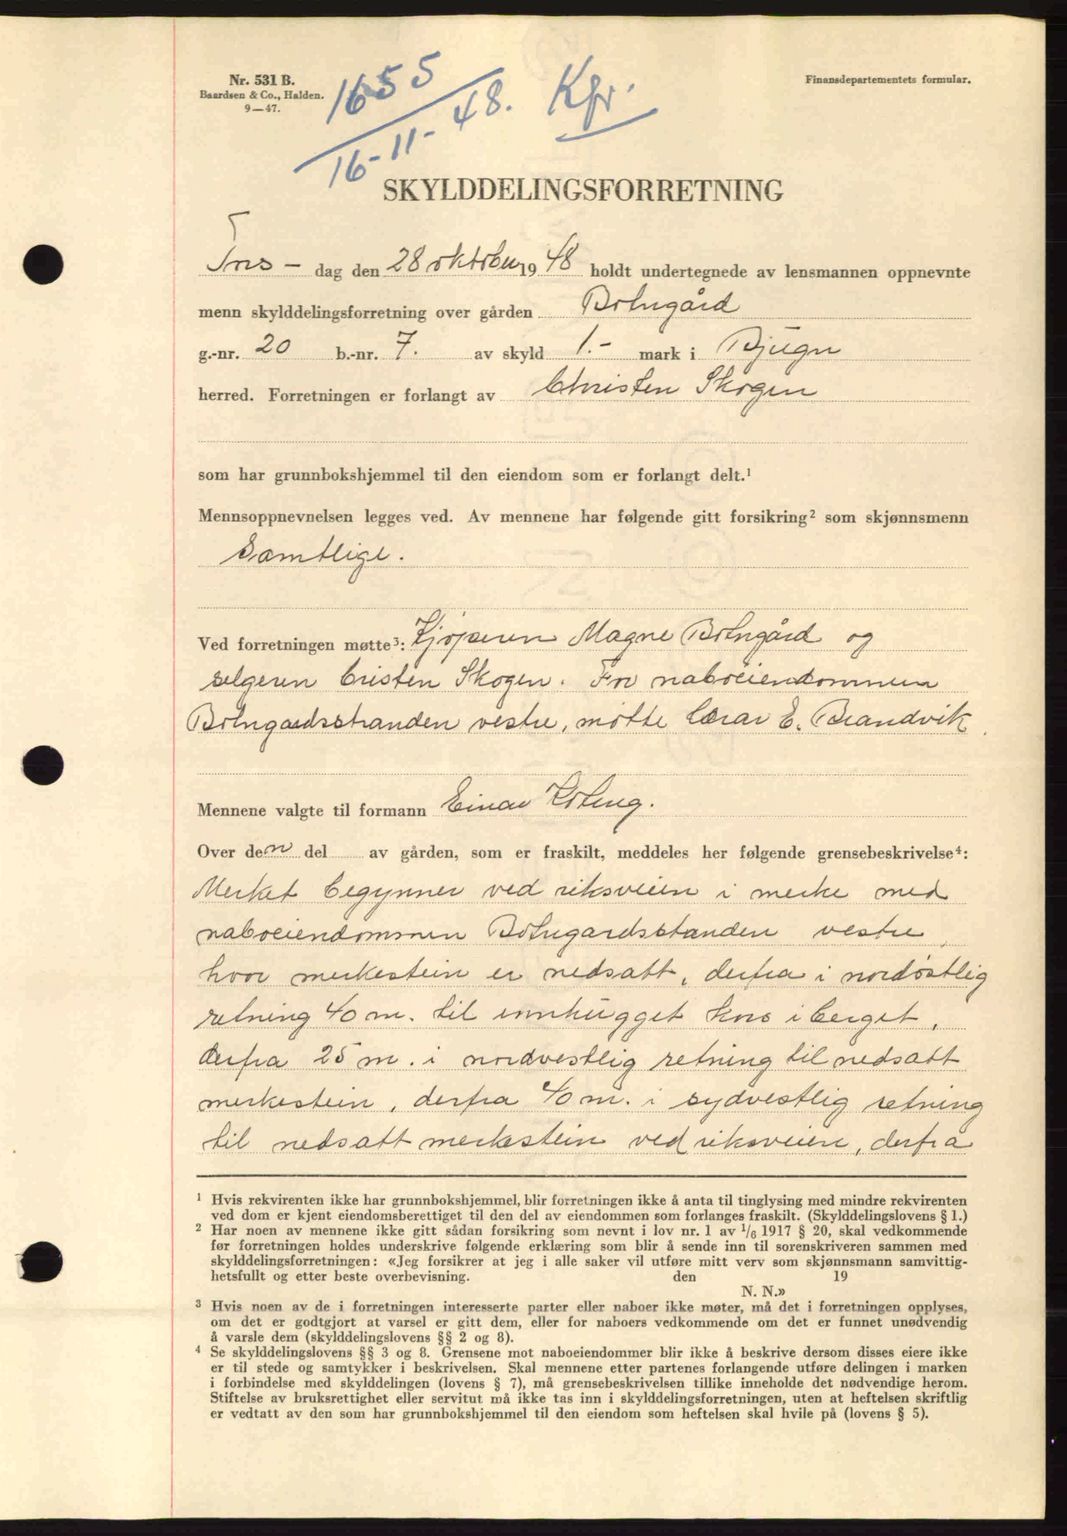 Nr. 531 B.
Baardsen & Co., Halden.
9—47.
Finansdepartementets formular.
1655
16-11-48. Kfr.
SKYLDDELINGSFORRETNING
Tors- dag den 28 oktober 1948 holdt undertegnede av lensmannen oppnevnte
menn skylddelingsforretning over gården Botngård
g.-nr. 20 b.-nr. 7. av skyld 1.- mark i Bjugn
herred. Forretningen er forlangt av Christen Skogen
som har grunnbokshjemmel til den eiendom som er forlangt delt.¹
Mennsoppnevnelsen legges ved. Av mennene har følgende gitt forsikring² som skjønnsmenn
Samtlige.
Ved forretningen møtte³: Kjøperen Magne Botngård og
selgeren Cristen Skogen. For naboeiendommen
Botngardsstranden vestre, møtte lærar E. Brandvik.
Mennene valgte til formann Einar
Over den del av gården, som er fraskilt, meddeles her følgende grensebeskrivelse⁴:
Merket begynner ved riksveien i merke med
naboeiendommen Botngardsstanden vestre,
hvor merkestein er nedsatt, derfra i nordøstlig
retning 40 m. til innhugget kors i berget,
derfra 25 m. i nordvestlig retning til nedsatt
merkestein, derfra 40 m. i sydvestlig retning
til nedsatt merkestein ved riksveien, derfra
¹ Hvis rekvirenten ikke har grunnbokshjemmel, blir forretningen ikke å anta til tinglysing med mindre rekvirenten
ved dom er kjent eiendomsberettiget til den del av eiendommen som forlanges fraskilt. (Skylddelingslovens § 1.)
² Har noen av mennene ikke gitt sådan forsikring som nevnt i lov nr. 1 av ¹/₆ 1917 § 20, skal vedkommende
før forretningen holdes underskrive følgende erklæring som blir å sende inn til sorenskriveren sammen med
skylddelingsforretningen: «Jeg forsikrer at jeg i alle saker vil utføre mitt verv som skjønnsmann samvittig-
hetsfullt og etter beste overbevisning. den 19
N. N.»
³ Hvis noen av de i forretningen interesserte parter eller naboer ikke møter, må det i forretningen opplyses,
om det er godtgjort at varsel er gitt dem, eller for naboers vedkommende om det er funnet unødvendig
å varsle dem (skylddelingslovens §§ 2 og 8).
⁴ Se skylddelingslovens §§ 3 og 8. Grensene mot naboeiendommer blir ikke å beskrive dersom disses eiere ikke
er til stede og samtykker i beskrivelsen. Skal mennene etter partenes forlangende utføre delingen i marken
i forbindelse med skylddelingen (lovens § 7), må grensebeskrivelsen tillike inneholde det nødvendige herom.
Stiftelse av bruksrettighet eller servitut må ikke tas inn i skylddelingsforretningen, uten at heftelsen skriftlig
er vedtatt av den som har grunnbokshjemmel til den eiendom som heftelsen skal hvile på (lovens § 5).